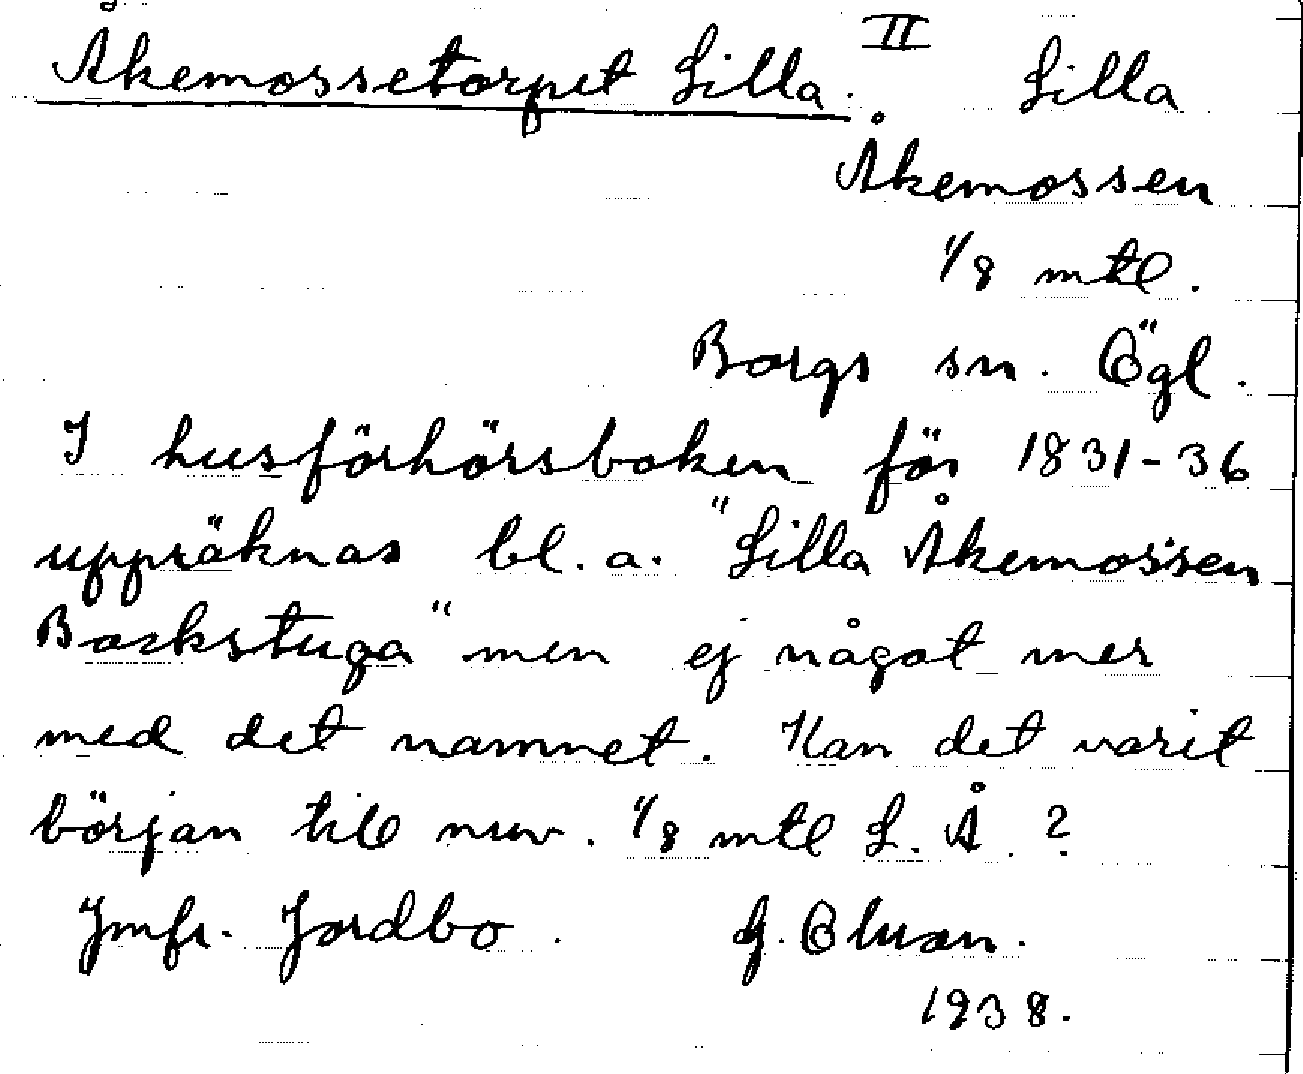 Åkemossetorpet Lilla. II Lilla
Åkemossen
1/8 mtl.
Borgs sn. Ögl.
I husförhörsboken för 1831-36
uppräknas bl. a. "Lilla Åkemossen
Backstuga" men ej något mer
med det namnet. Kan det varit
början till nuv. 1/8 mtl L. Å. ?
Jmfr. Jordbo. G.
1938.